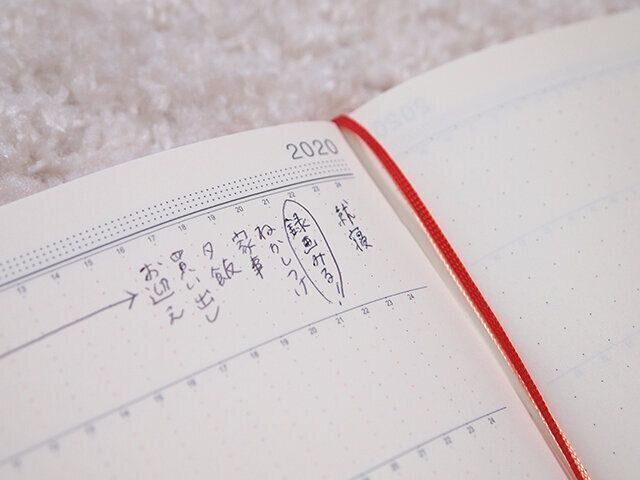 2020
13 16 17 18 19 20 21 22 23 24
お迎え
買い出し
夕飯
家事
ねかしつけ
録画みる!
就寝
11 12 13 14 15 16 17 18 19 20 21 22 23 24
20 21 22 23 24